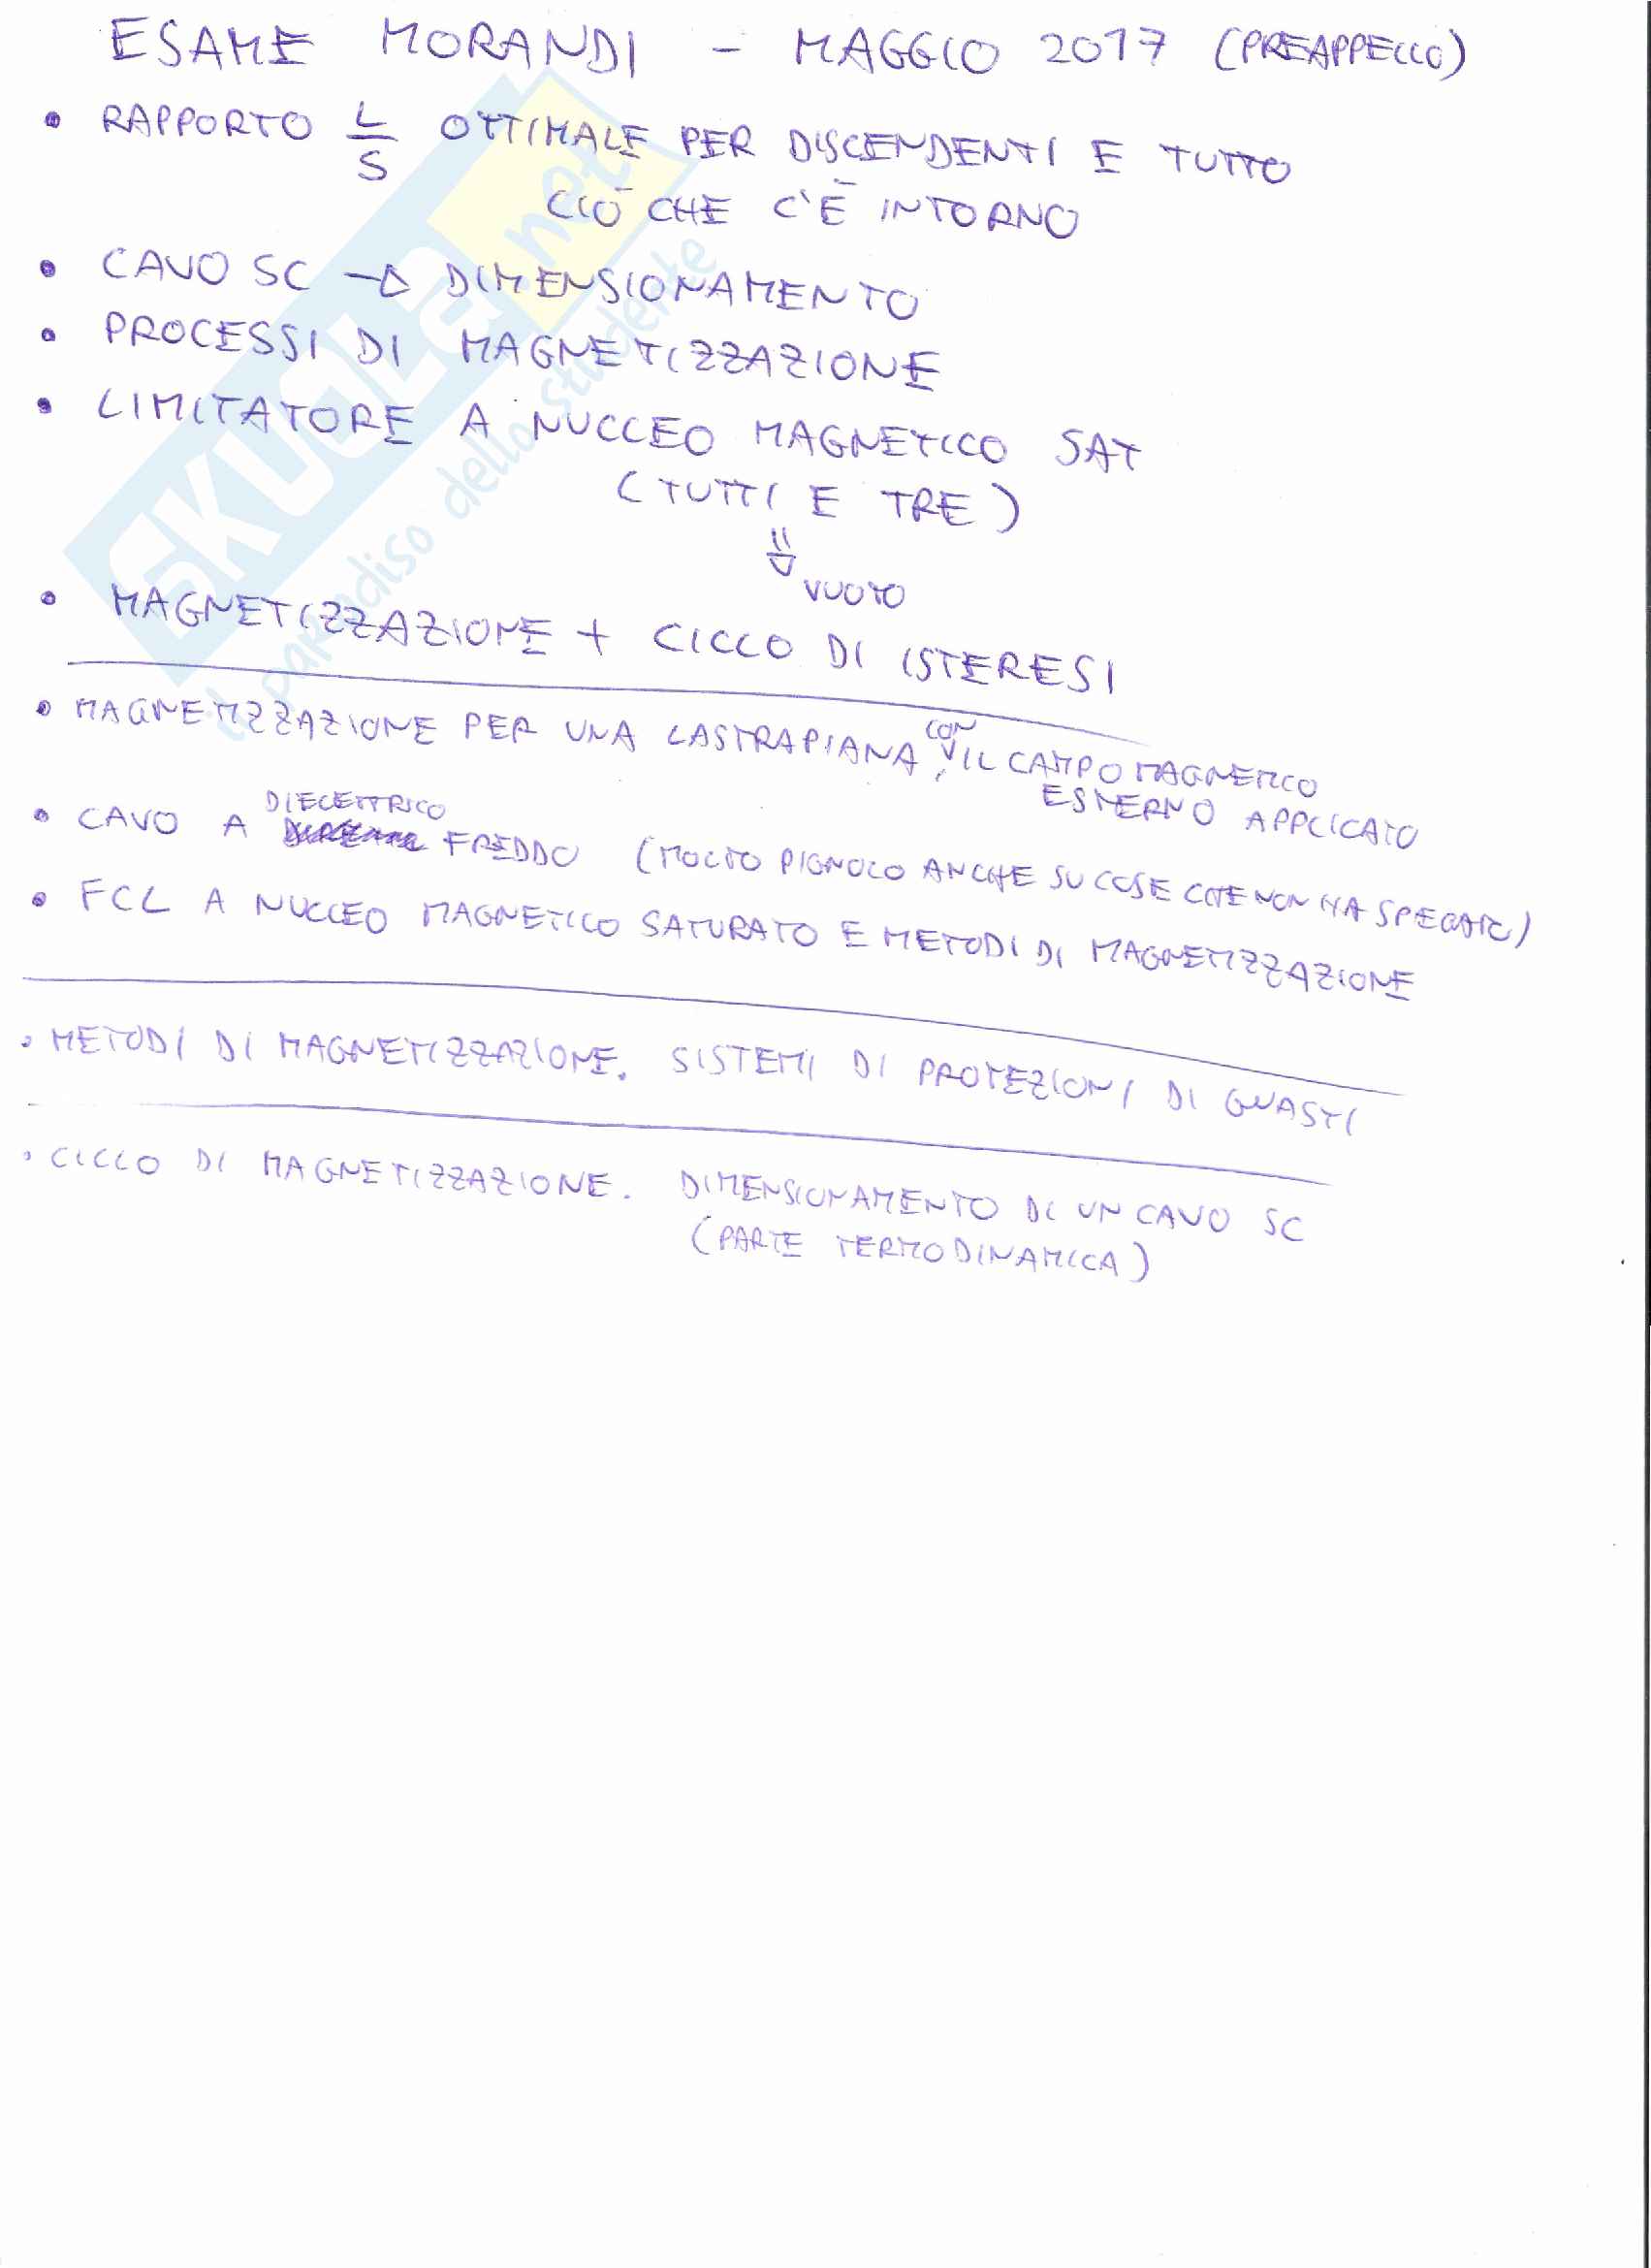 ESAME MORANDI - MAGGIO 2017 (PREAPPELLO)
• RAPPORTO L/S OTTIMALE PER DISCENDENTI E TUTTO
CIÒ CHE C'È INTORNO
• CAVO SC → DIMENSIONAMENTO
• PROCESSI DI MAGNETIZZAZIONE
• LIMITATORE A NUCLEO MAGNETICO SAT
(TUTTI E TRE)
⇓ VUOTO
• MAGNETIZZAZIONE + CICLO DI ISTERESI
• MAGNETIZZAZIONE PER UNA LASTRA PIANA, CON IL CAMPO MAGNETICO
ESTERNO APPLICATO
• CAVO A DIELETTRICO FREDDO (MOLTO PIGNOLO ANCHE SU COSE CHE NON HA SPEGATO)
• FCL A NUCLEO MAGNETICO SATURATO E METODI DI MAGNETIZZAZIONE
• METODI DI MAGNETIZZAZIONE. SISTEMI DI PROTEZIONI DI GUASTI
• CICLO DI MAGNETIZZAZIONE. DIMENSIONAMENTO DI UN CAVO SC
(PARTE TERMODINAMICA)
SKUOLA.net
il paradiso dello studente